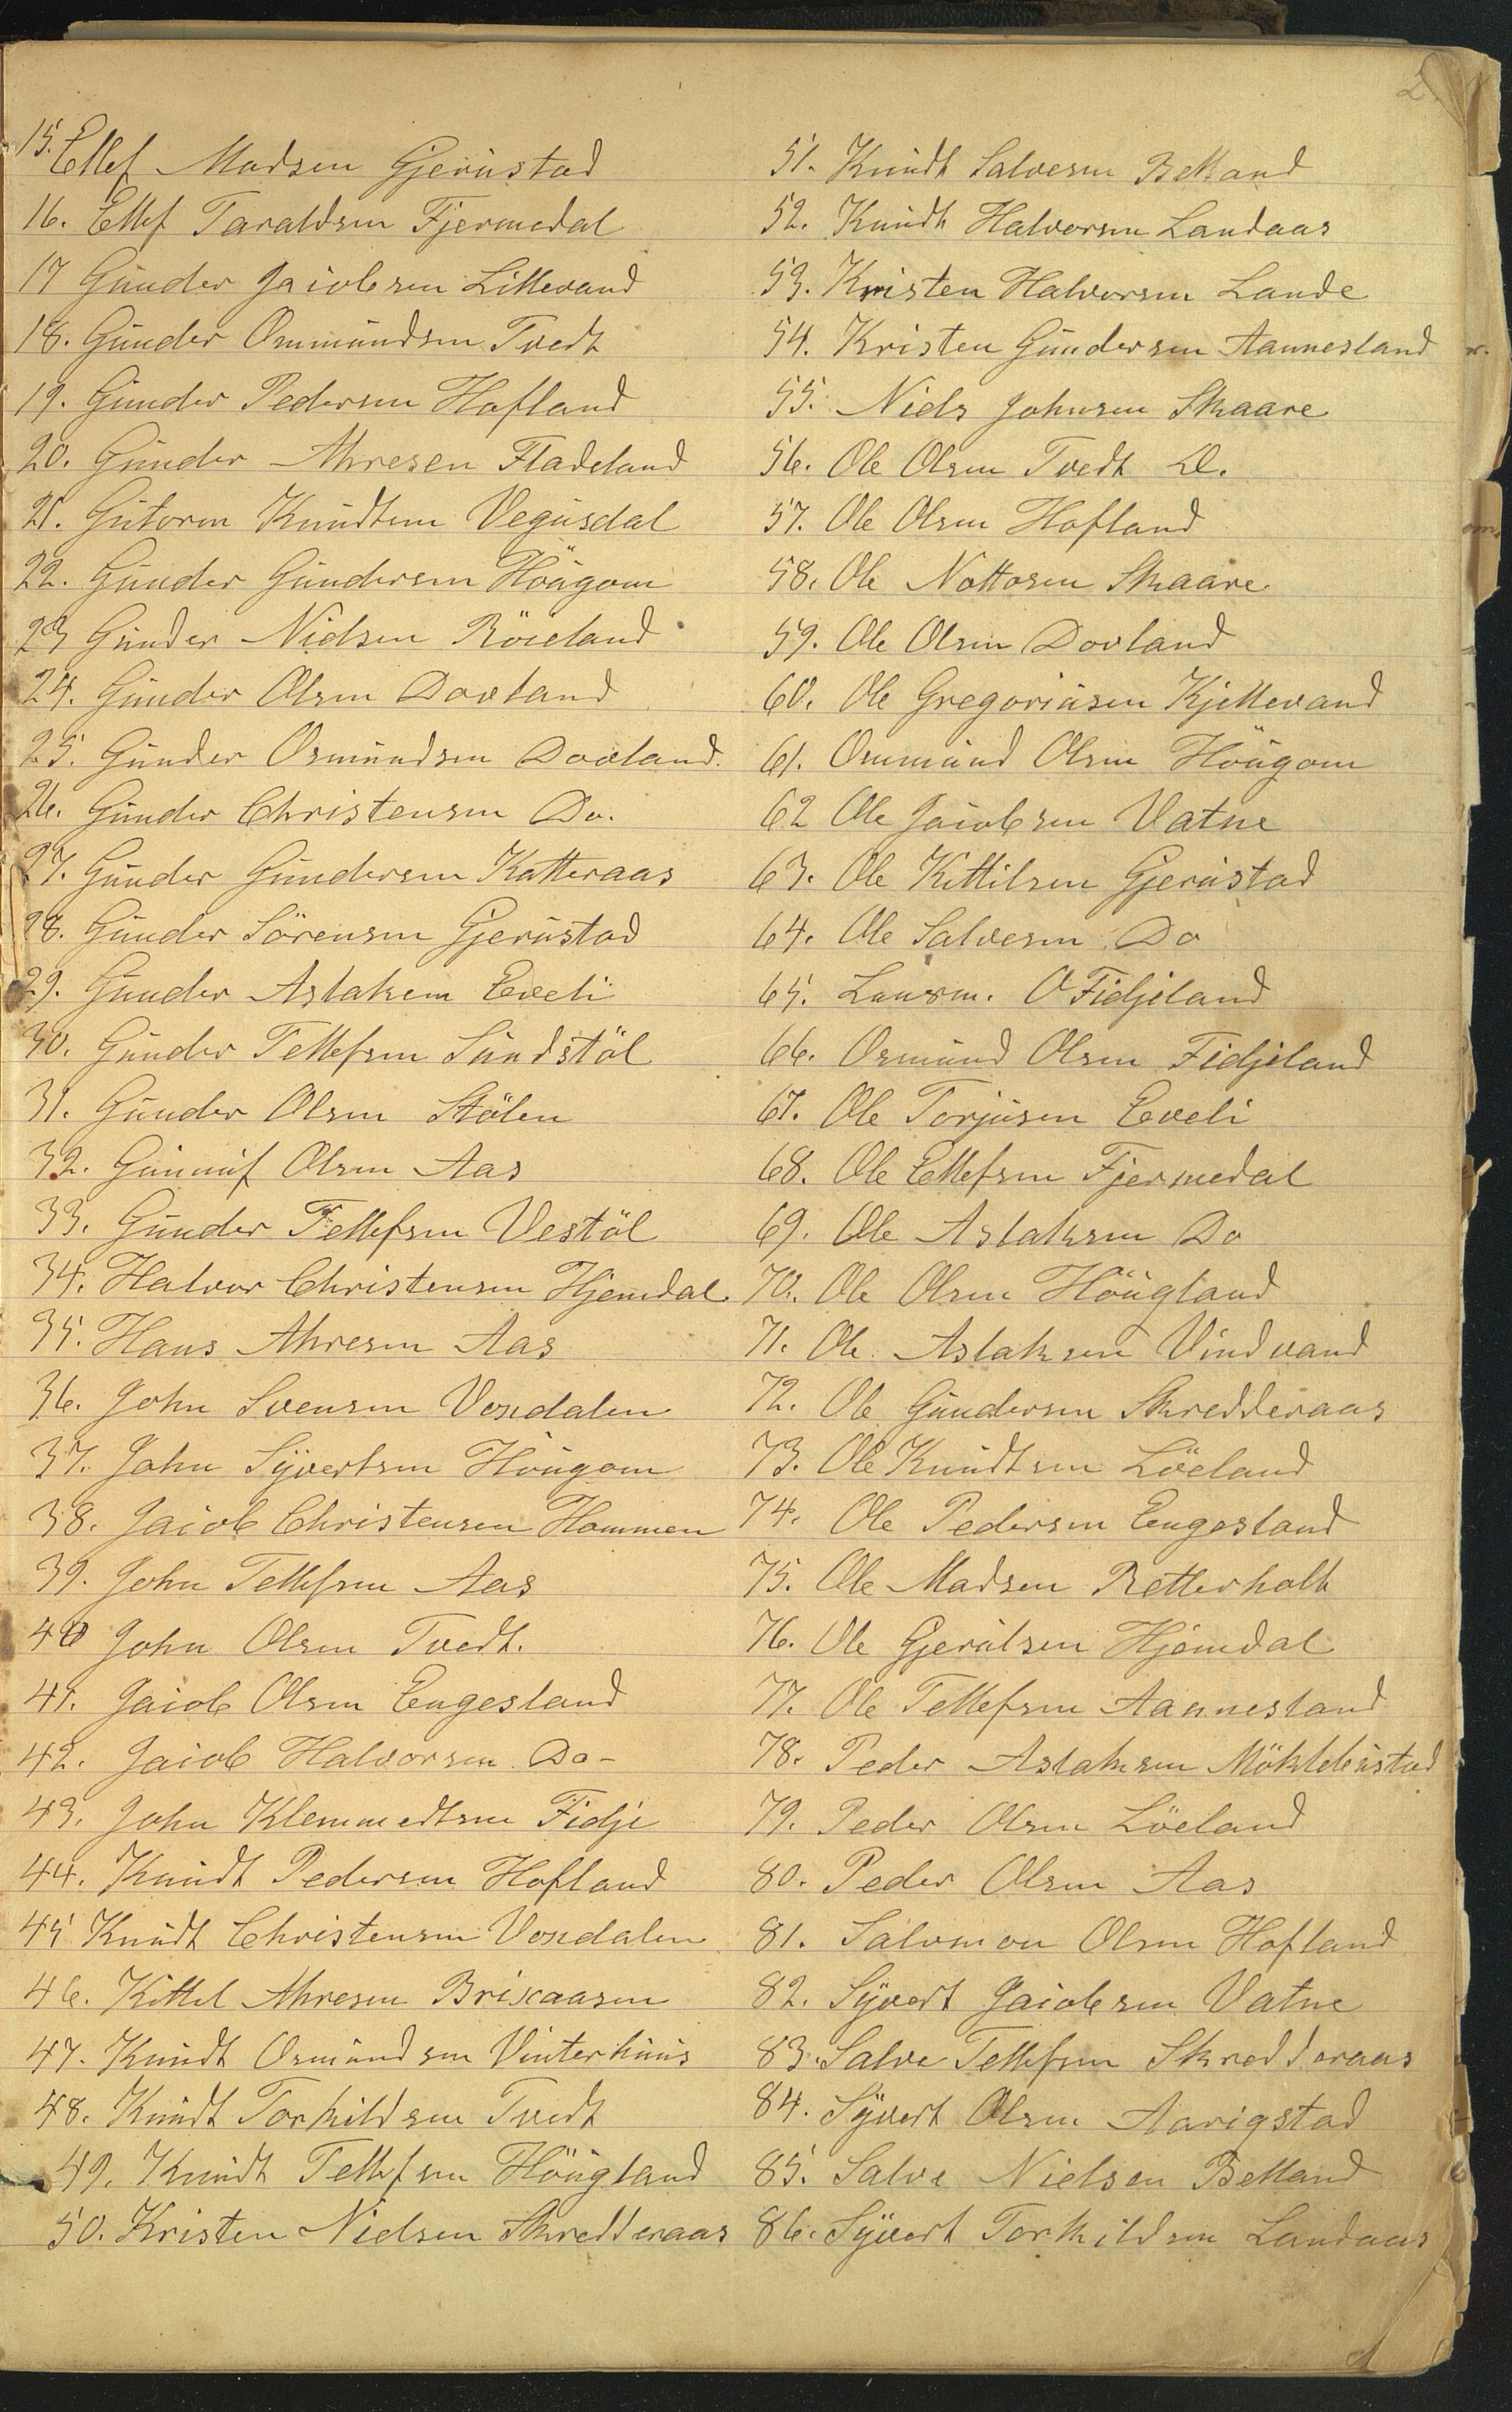 2.
15. Ellef Madsen Gjerustad
16. Ellef Taraldsen Fjermedal
17 Gunder Jacobsen Lillevand
18. Gunder Ommundsen Tvedt
19. Gunder Pedersen Hofland
20. Gunder Ahresen Fladeland
21. Gutorm Knudtsen Vegusdal
22. Gunder Gundersen Höugom
23 Gunder Nielsen Röieland
24. Gunder Olsen Dovland
25. Gunder Osmundsen Dovland.
26. Gunder Christensen Do.
27. Gunder Gundersen Katteraas
28. Gunder Sörensen Gjerustad
29. Gunder Aslaksen Eveli
30. Gunder Tellefsen Sundstöl
31. Gunder Olsen Stölen
32. Gunnuf Olsen Aas
33. Gunder Tellefsen Vestöl
34. Halvor Christensen Hjemdal
35. Hans Ahresen Aas
36. John Svensen Voxdalen
37. John Syvertsen Höugom
38. Jacob Christensen Hommen
39. John Tellefsen Aas
40 John Olsen Tvedt.
41. Jacob Olsen Engesland
42. Jacob Halvorsen Do-
43. John Klemmedtsen Fidje
44. Knudt Pedersen Hofland
45 Knudt Christensen Voxdalen
46. Kittel Ahresen Brixaasen
47. Knudt Osmundsen Vinterhuus
48. Knudt Torkildsen Tvedt
49. Knudt Tellefsen Höugland
50. Kristen Nielsen Skredderaas
51. Knudt Salvesen Belland
52. Knudt Halvorsen Landaas
53. Kristen Halvorsen Lande
54. Kristen Gundersen Aannesland
55. Niels Johnsen Skaare
56. Ole Olsen Tvedt D.
57. Ole Olsen Hofland
58. Ole Nottosen Skaare
59. Ole Olsen Dovland
60. Ole Gregoriusen Kjellevand
61. Ommund Olsen Höugom
62 Ole Jacobsen Vatne
63. Ole Kittilsen Gjerustad
64. Ole Salvesen Do
65. Lensm. O Fidjeland
66. Osmund Olsen Fidjeland
67. Ole Torjusen Eveli
68. Ole Ellefsen Fjermedal
69. Ole Aslaksen Do
70. Ole Olsen Höugland
71. Ole Aslaksen Vindvand
72. Ole Gundersen Skredderaas
73. Ole Knudtsen Löeland
74. Ole Pedersen Engesland
75. Ole Madsen Retterholt
76. Ole Gjerulsen Hjemdal
77. Ole Tellefsen Aannesland
78. Peder Aslaksen Möklebustad
79. Peder Olsen Löeland
80. Peder Olsen Aas
81. Salomon Olsen Hofland
82. Syvert Jacobsen Vatne
83. Salve Tellefsen Skredderaas
84. Syvert Olsen Aarigstad
85. Salve Nielsen Belland
86. Syvert Torkildsen Landaas